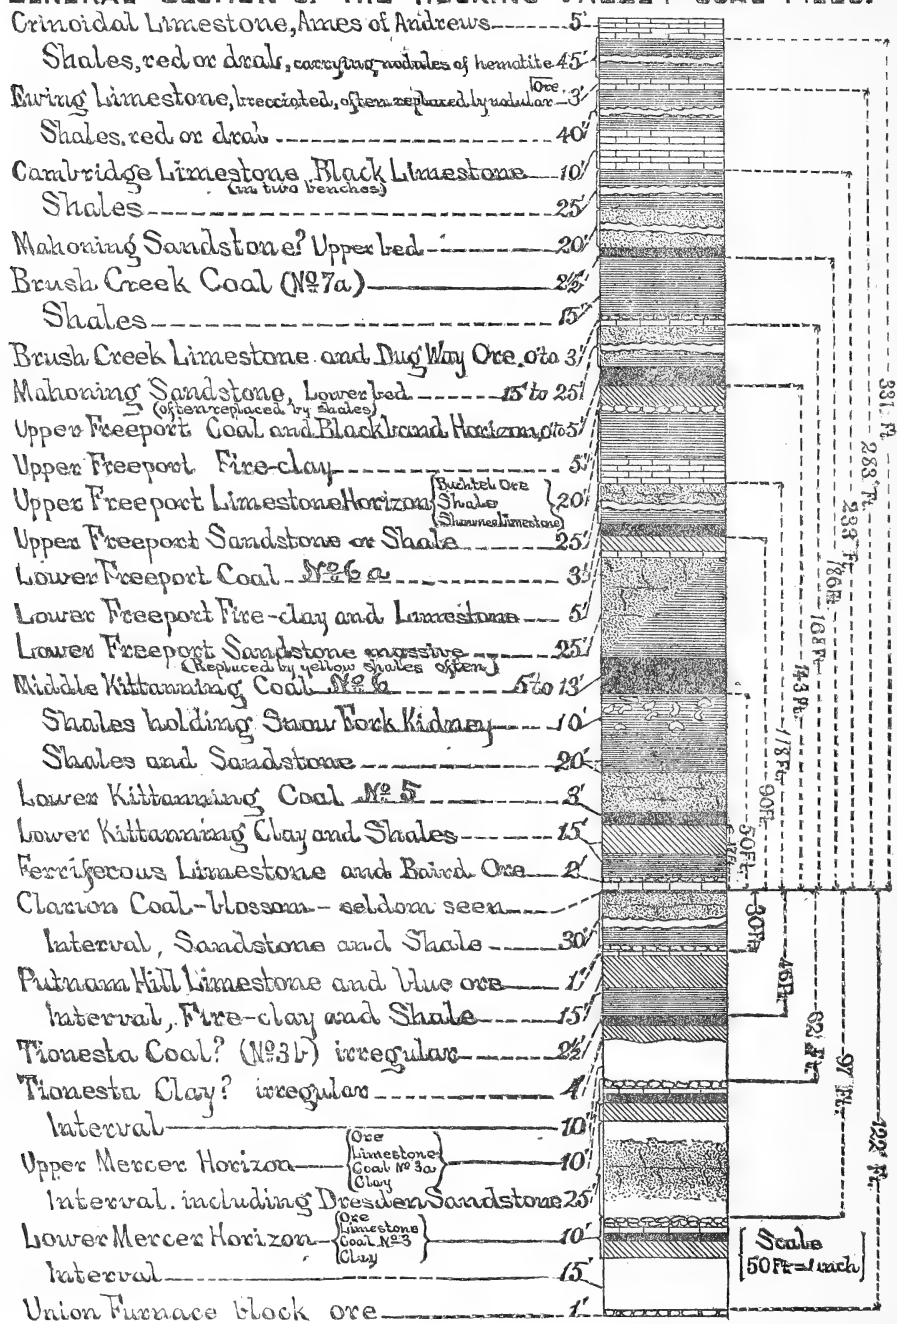 GENERAL SECTION OF THE HOCKING VALLEY COAL FIELD.
Crinoidal Limestone, Ames of Andrews 5'
Shales, red or drab, carrying nodules of hematite 45'
Ewing Limestone, brecciated, often replaced by nodular Ore 3'
Shales, red or drab 40'
Cambridge Limestone Black Limestone 10'
(in two benches)
Shales 25'
Mahoning Sandstone? Upper bed 20'
Brush Creek Coal (No 7a) 2½'
Shales 15'
Brush Creek Limestone and Dug Way Ore, 0 to 3'
Mahoning Sandstone, Lower bed 15' to 25'
(often replaced by shales)
Upper Freeport Coal and Blackband Horizon, 0 to 5'
Upper Freeport Fire-clay 5'
Upper Freeport Limestone Horizon { Buchtel Ore
Shale
Shawnee Limestone } 20'
Upper Freeport Sandstone or Shale 25'
Lower Freeport Coal No 6a 3'
Lower Freeport Fire-clay and Limestone 5'
Lower Freeport Sandstone massive 25'
(Replaced by yellow shales often)
Middle Kittanning Coal No 6 5' to 13'
Shales holding Snow Fork Kidney 10'
Shales and Sandstone 20'
Lower Kittanning Coal No 5 3'
Lower Kittanning Clay and Shales 15'
Ferriferous Limestone and Baird Ore 2'
Clarion Coal-blossom-seldom seen
Interval, Sandstone and Shale 30'
Putnam Hill Limestone and blue ore 1'
Interval, Fire-clay and Shale 15'
Tionesta Coal? (No 3b) irregular 2½'
Tionesta Clay? irregular 4'
Interval 10'
Upper Mercer Horizon { Ore
Limestone
Coal No 3a
Clay } 10'
Interval. including Dresden Sandstone 25'
Lower Mercer Horizon { Ore
Limestone
Coal No 3
Clay } 10'
Interval 15'
Union Furnace block ore 1'
331 Ft.
283 Ft.
233 Ft.
186 Ft.
168 Ft.
143 Ft.
118 Ft.
90 Ft.
50 Ft.
30 Ft.
46 Ft.
62 Ft.
97 Ft.
122 Ft.
[Scale
50 Ft = 1 inch]